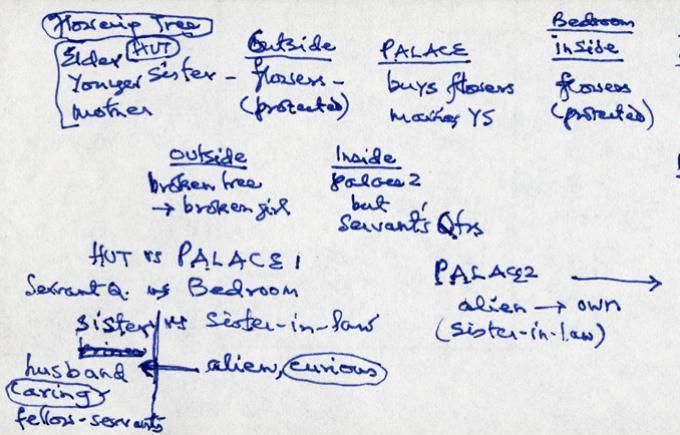 Flowering Tree
Elder HUT
Younger Sister -
mother
Outside
flowers -
(protected)
PALACE
buys flowers
marries YS
Bedroom
inside
flowers
(protected)
outside
broken tree
→ broken girl
Inside
palace 2
but
Servant's Qtrs
HUT vs PALACE 1
Servant Q. vs Bedroom
sister vs Sister-in-law
husband ← alien, curious
caring
fellow-servants
PALACE 2 →
alien → own
(Sister-in-law)